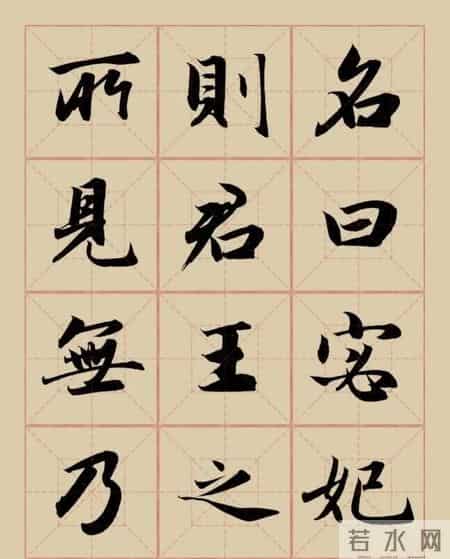 名曰宓妃
則君王之
所見無乃
若水网